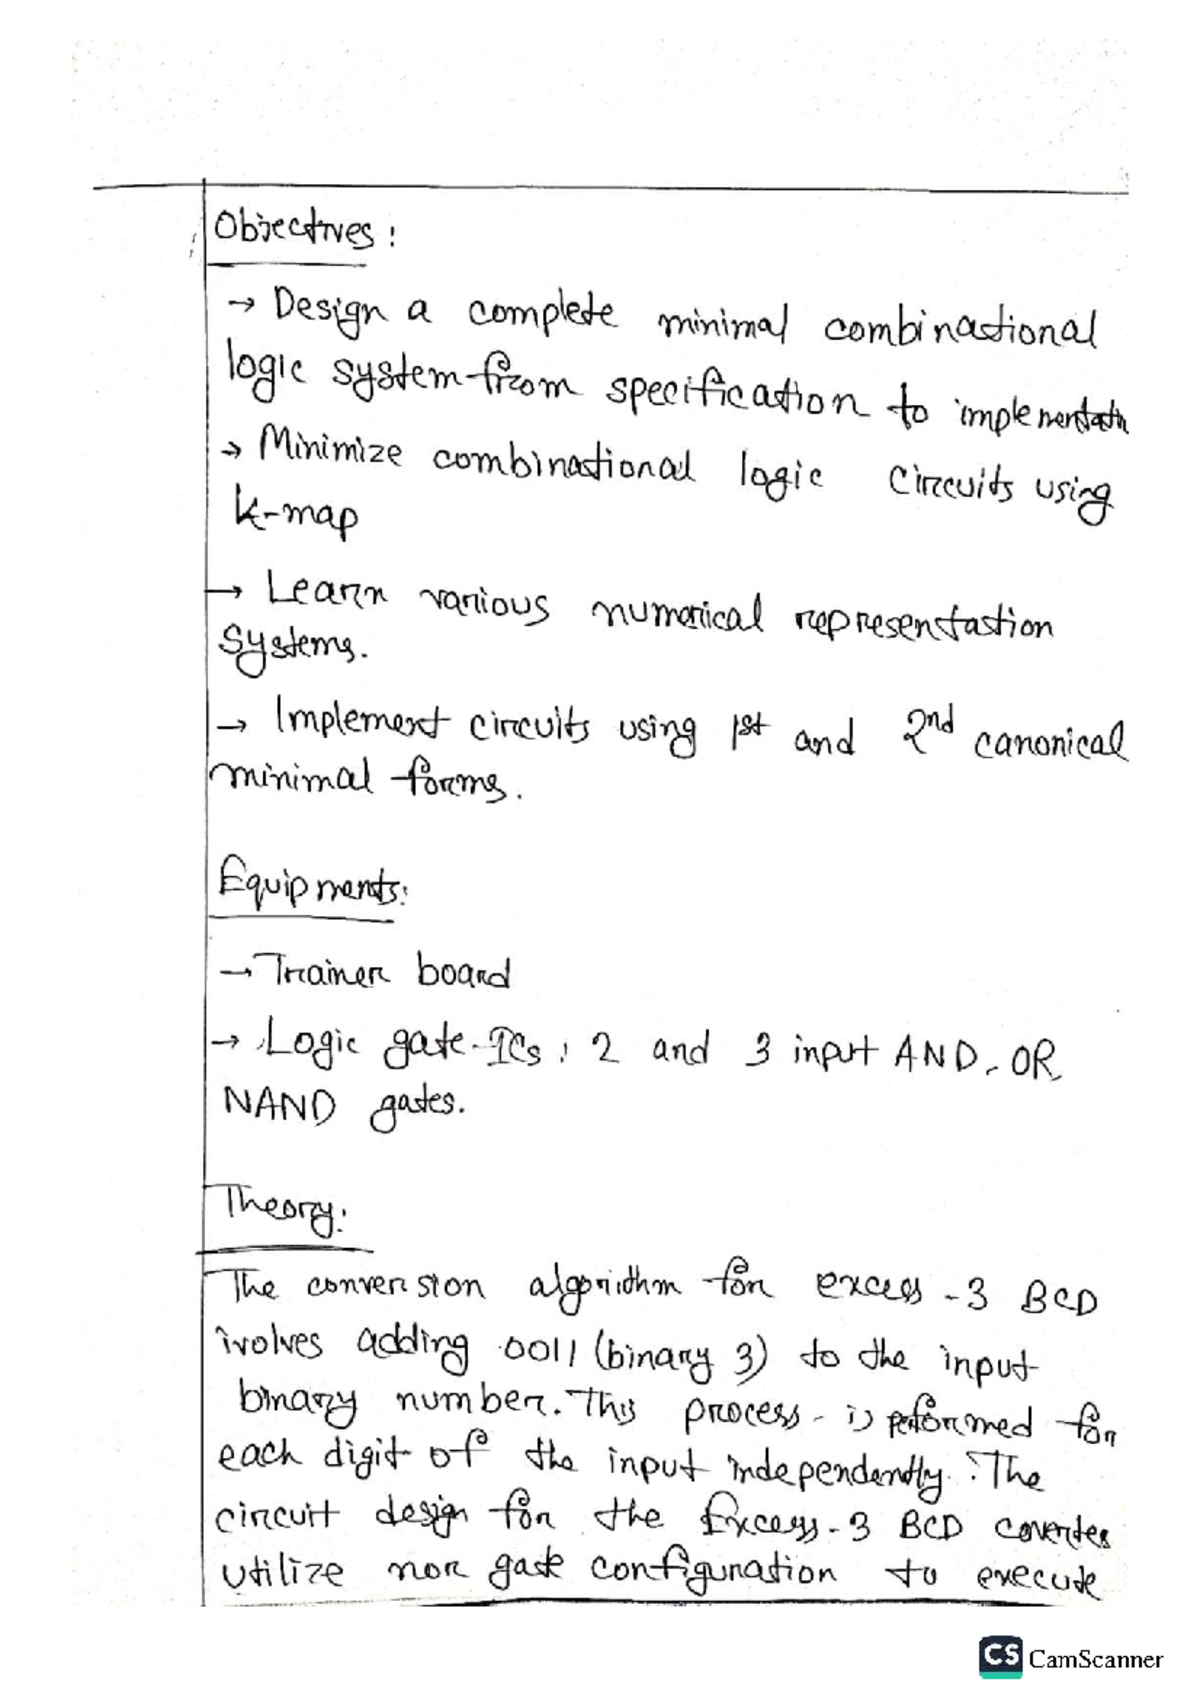 Objectives:
→ Design a complete minimal combinational
logic system from specification to implementatn
→ Minimize combinational logic circuits using
k-map
→ Learn various numerical representation
systems.
→ Implement circuits using 1st and 2nd canonical
minimal forms.
Equipments:
→ Trainer board
→ Logic gate ICs: 2 and 3 input AND, OR
NAND gates.
Theory:
The conversion algorithm for excess-3 BCD
ivolves adding 0011 (binary 3) to the input
binary number. This process is performed for
each digit of the input independently. The
circuit design for the Excess-3 BCD coverter
utilize nor gate configuration to execute
CS CamScanner